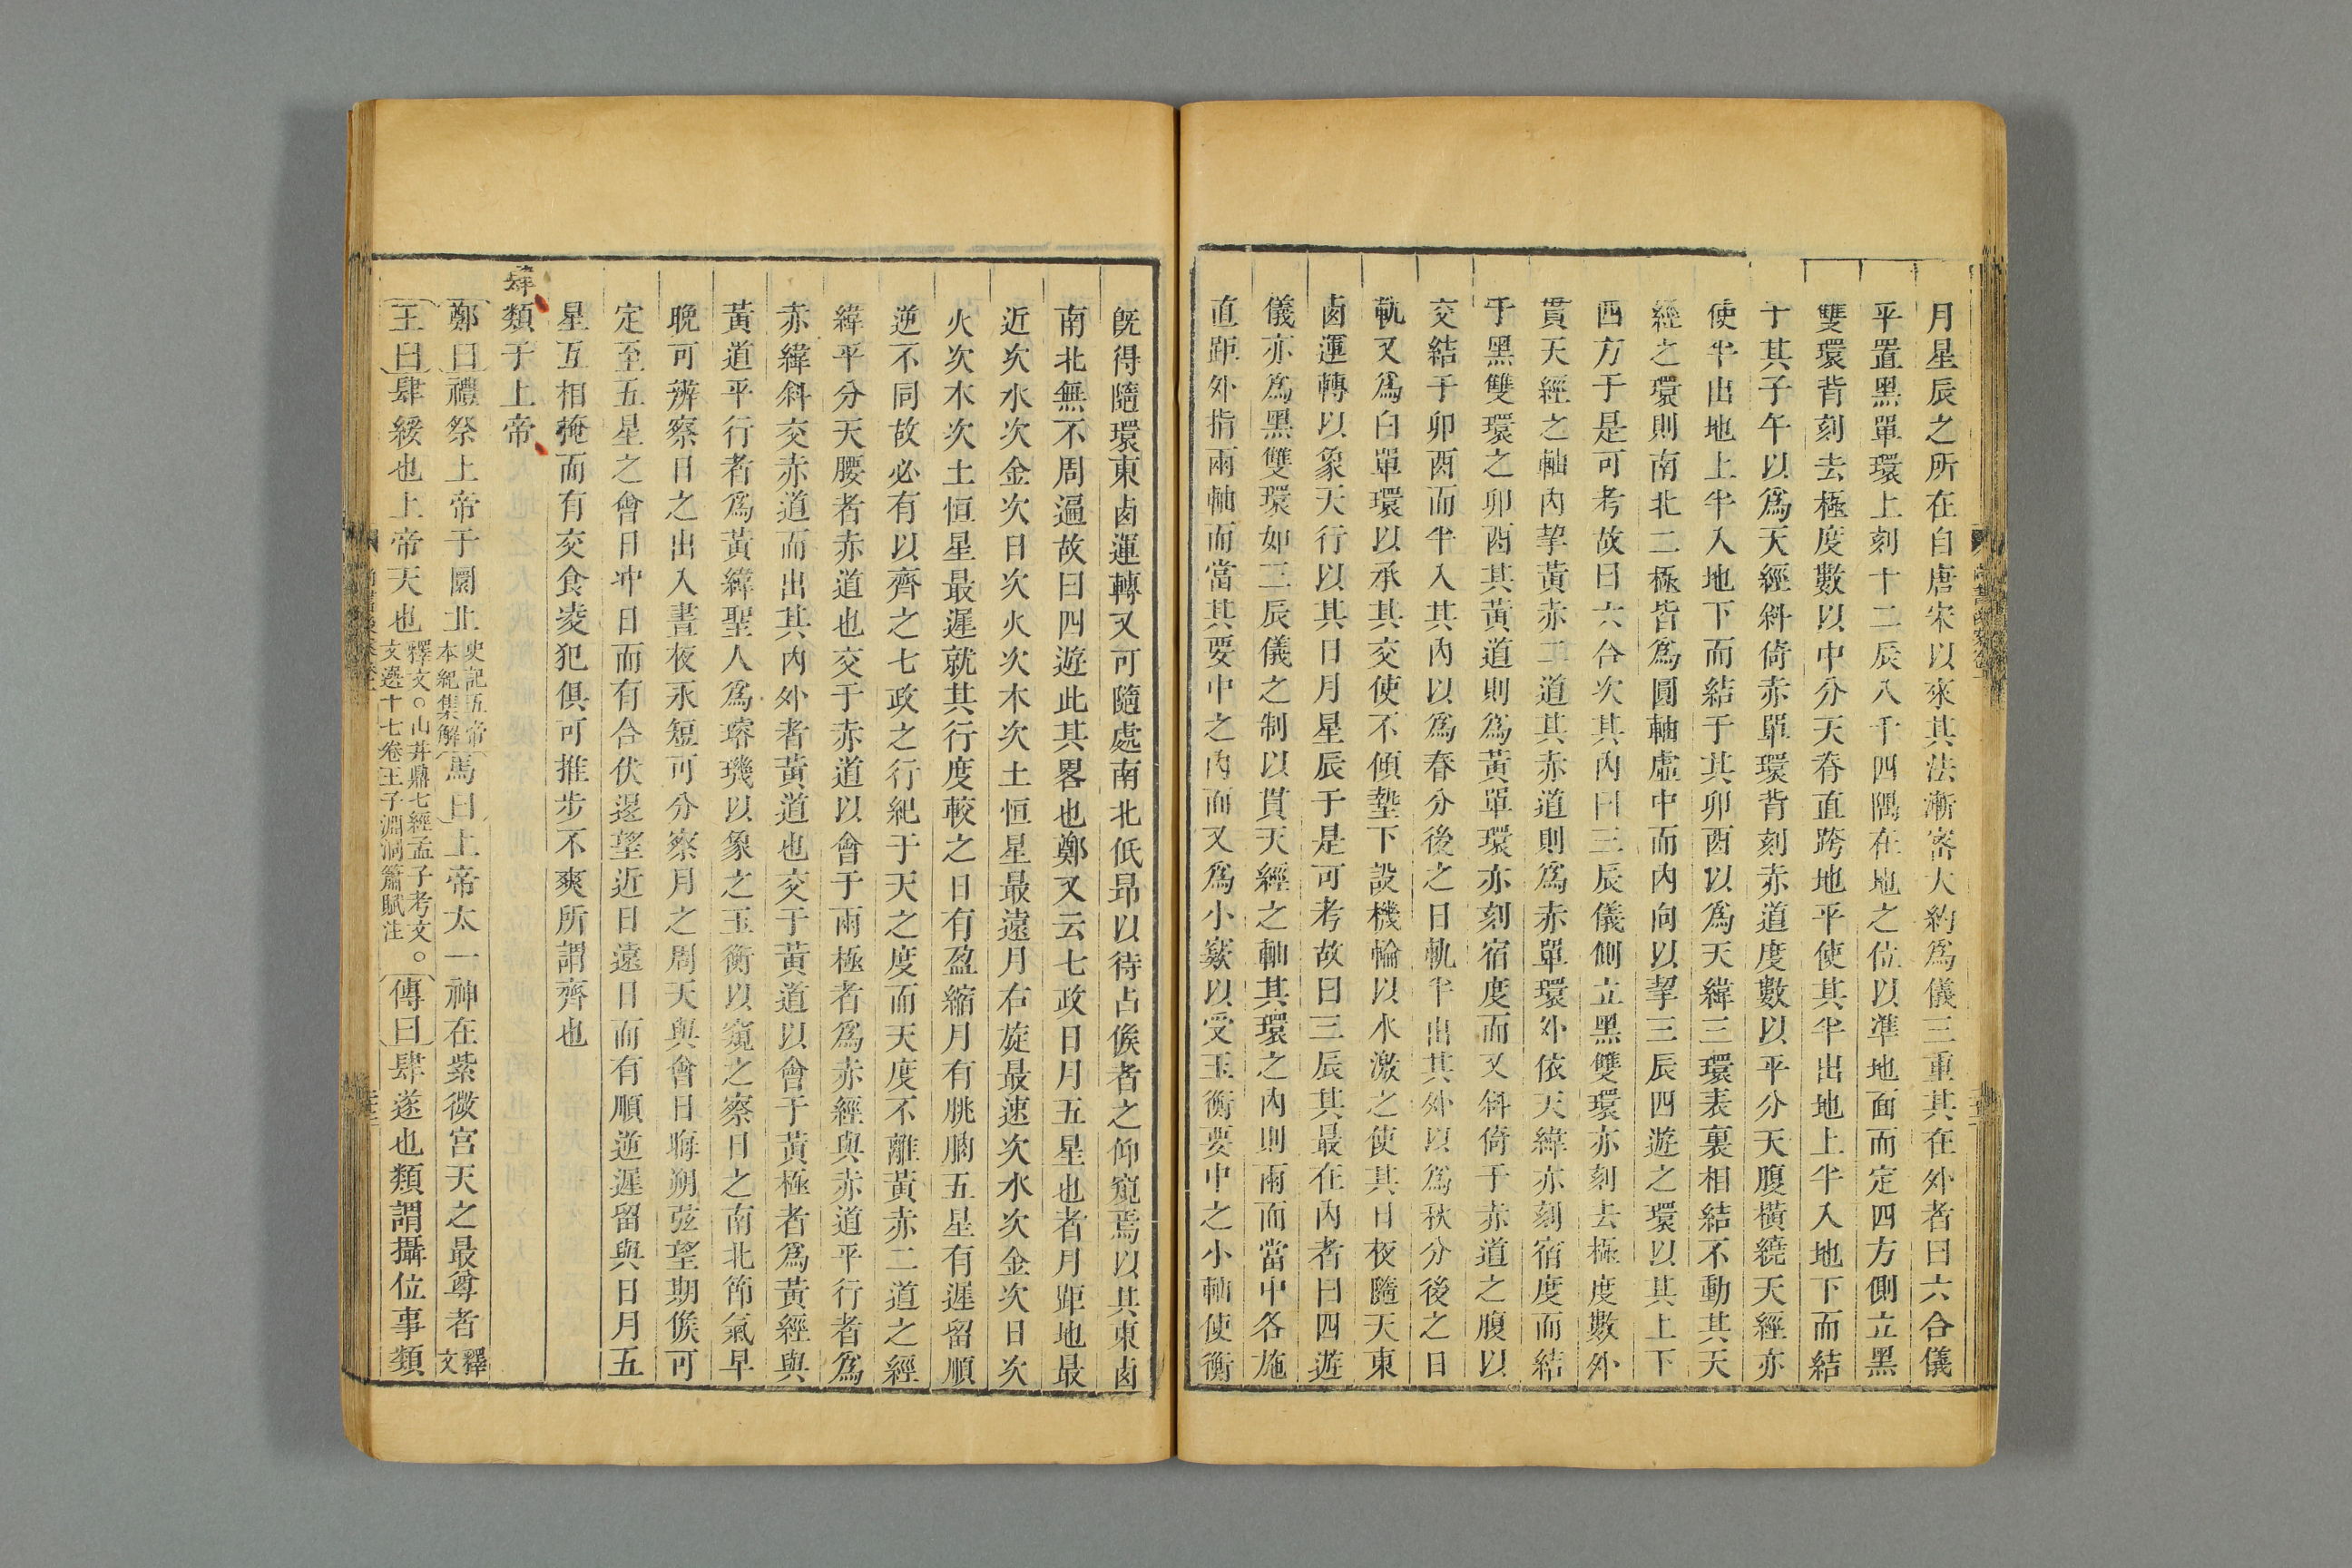 月星辰之所在自唐宋以來其法漸密大約爲儀三重其在外者曰六合儀
平置黑單環上刻十二辰八千四隅在地之位以準地面而定四方側立黑
雙環背刻去極度數以中分天脊直跨地平使其半出地上半入地下而結
于其子午以爲天經斜倚赤單環背刻赤道度數以平分天腹橫繞天經亦
使半出地上半入地下而結于其卯酉以爲天緯三環表裏相結不動其天
經之環則南北二極皆爲圓軸虛中而內向以挈三辰四遊之環以其上下
四方于是可考故曰六合次其內曰三辰儀側立黑雙環亦刻去極度數外
貫天經之軸內挈黃赤二道其赤道則爲赤單環外依天緯亦刻宿度而結
于黑雙環之卯酉其黃道則爲黃單環亦刻宿度而又斜倚于赤道之腹以
交結于卯酉而半入其內以爲春分後之日軌半出其外以爲秋分後之日
軌又爲白單環以承其交使不傾墊下設機輪以水激之使其日夜隨天東
㢴運轉以象天行以其日月星辰于是可考故曰三辰其最在內者曰四遊
儀亦爲黑雙環如三辰儀之制以貫天經之軸其環之內則兩面當中各施
直距外指兩軸而當其要中之內面又爲小窽以受玉衡要中之小軸使衡
旣得隨環東㢴運轉又可隨處南北低昻以待占候者之仰窺焉以其東㢴
南北無不周遍故曰四遊此其畧也鄭又云七政日月五星也者月距地最
近次水次金次日次火次木次土恒星最遠月右旋最速次水次金次日次
火次木次土恒星最遲就其行度較之日有盈縮月有朓朒五星有遲留順
逆不同故必有以齊之七政之行紀于天之度而天度不離黃赤二道之經
緯平分天腰者赤道也交于赤道以會于兩極者爲赤經與赤道平行者爲
赤緯斜交赤道而出其內外者黃道也交于黃道以會于黃極者爲黃經與
黃道平行者爲黃緯聖人爲璿璣以象之玉衡以窺之察日之南北節氣早
晚可辨察日之出入晝夜永短可分察月之周天與會日晦朔弦望期候可
定至五星之會日冲日而有合伏退望近日遠日而有順逆遲留與日月五
星互相掩而有交食凌犯俱可推步不爽所謂齊也
肆類于上帝
鄭曰禮祭上帝于圜丘史記五帝本紀集解馬曰上帝太一神在紫微宮天之最尊者釋文
王曰肆緩也上帝天也釋文○山井鼎七經孟子考文○文選十七卷王子淵洞簫賦注傳曰肆遂也類謂攝位事類